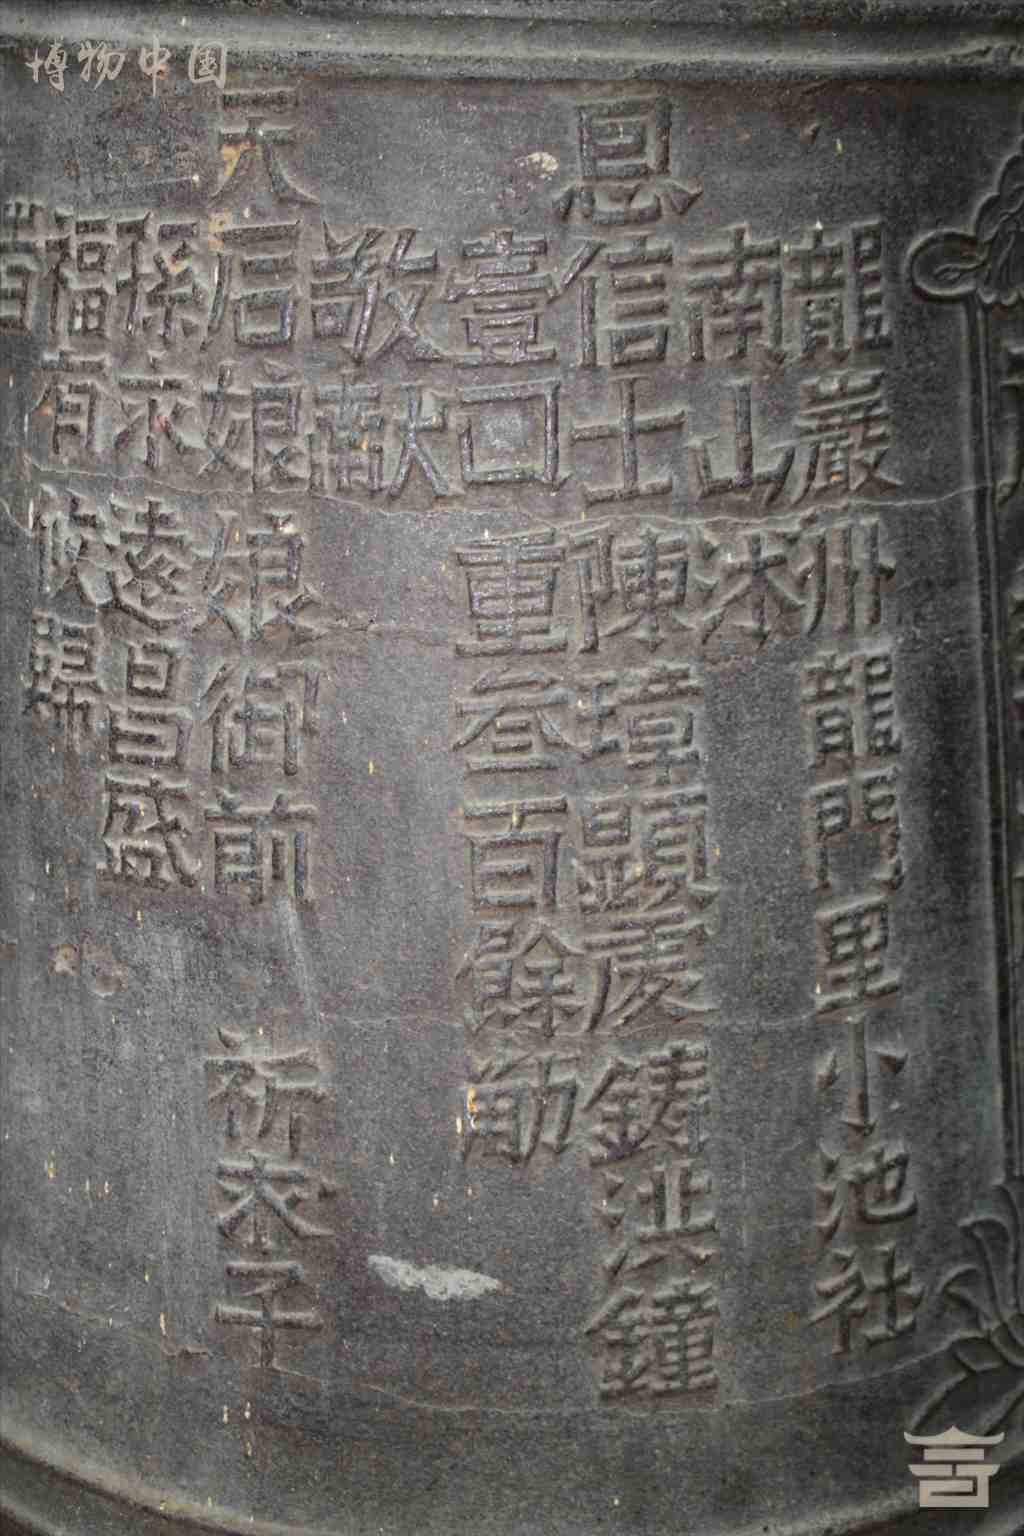 龍巖州龍門里小池社
南山沐
恩信士陳璋顯虔鑄洪鐘
壹口重叁百餘觔
敬獻
天后娘娘御前 祈求子
孫永遠昌盛
福有攸歸
博物中国